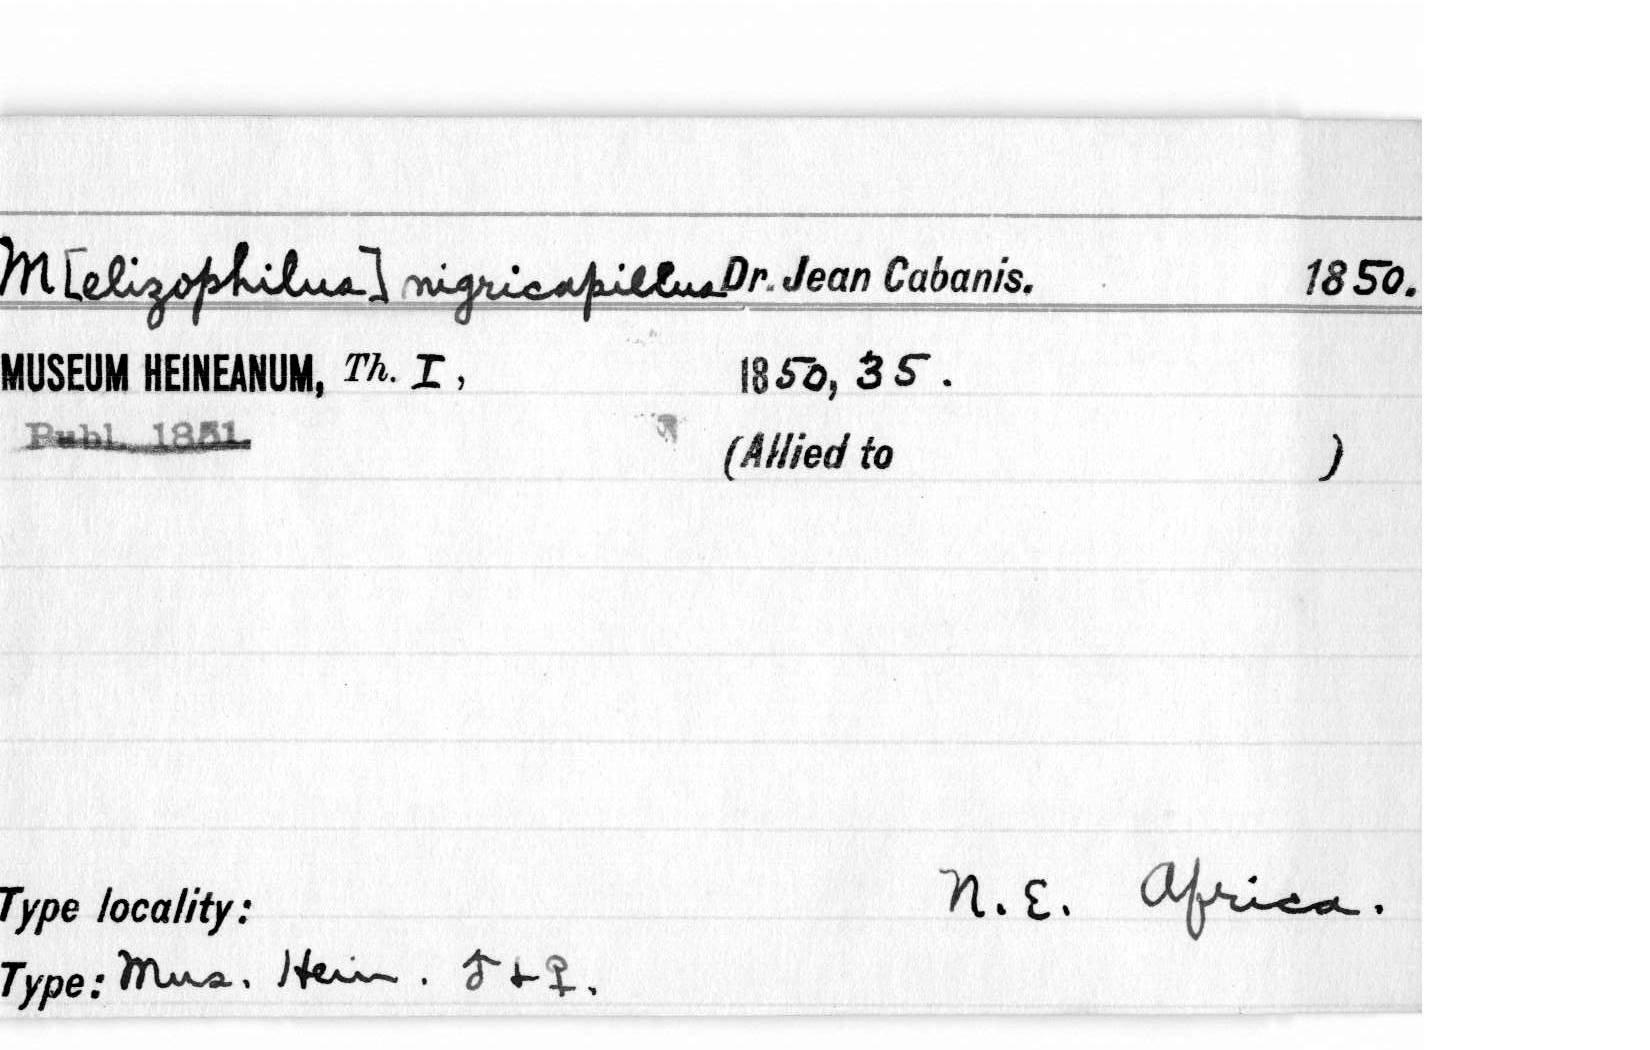 M[elizophilus] nigricapillus Dr. Jean Cabanis. 1850.
MUSEUM HEINEANUM, Th. I, 1850, 35.
Publ. 1851.
(Allied to )
Type locality: N. E. Africa.
Type: Mus. Hein. ♂ + ♀.